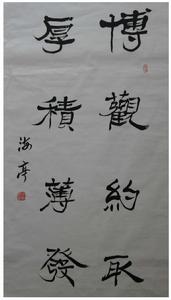 博觀約取
厚積薄發
海亭